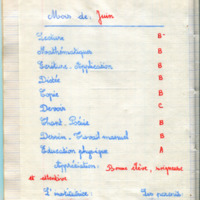 Mois de: Juin
Lecture B+
Mathématiques B
Ecriture. Application B
Dictée B
Copie B
Devoirs C
Chant. Poésie B
Dessin. Travail manuel B
Education physique A
Appréciation: Bonne élève, soigneuse
et attentive
L'institutrice: Les parents: